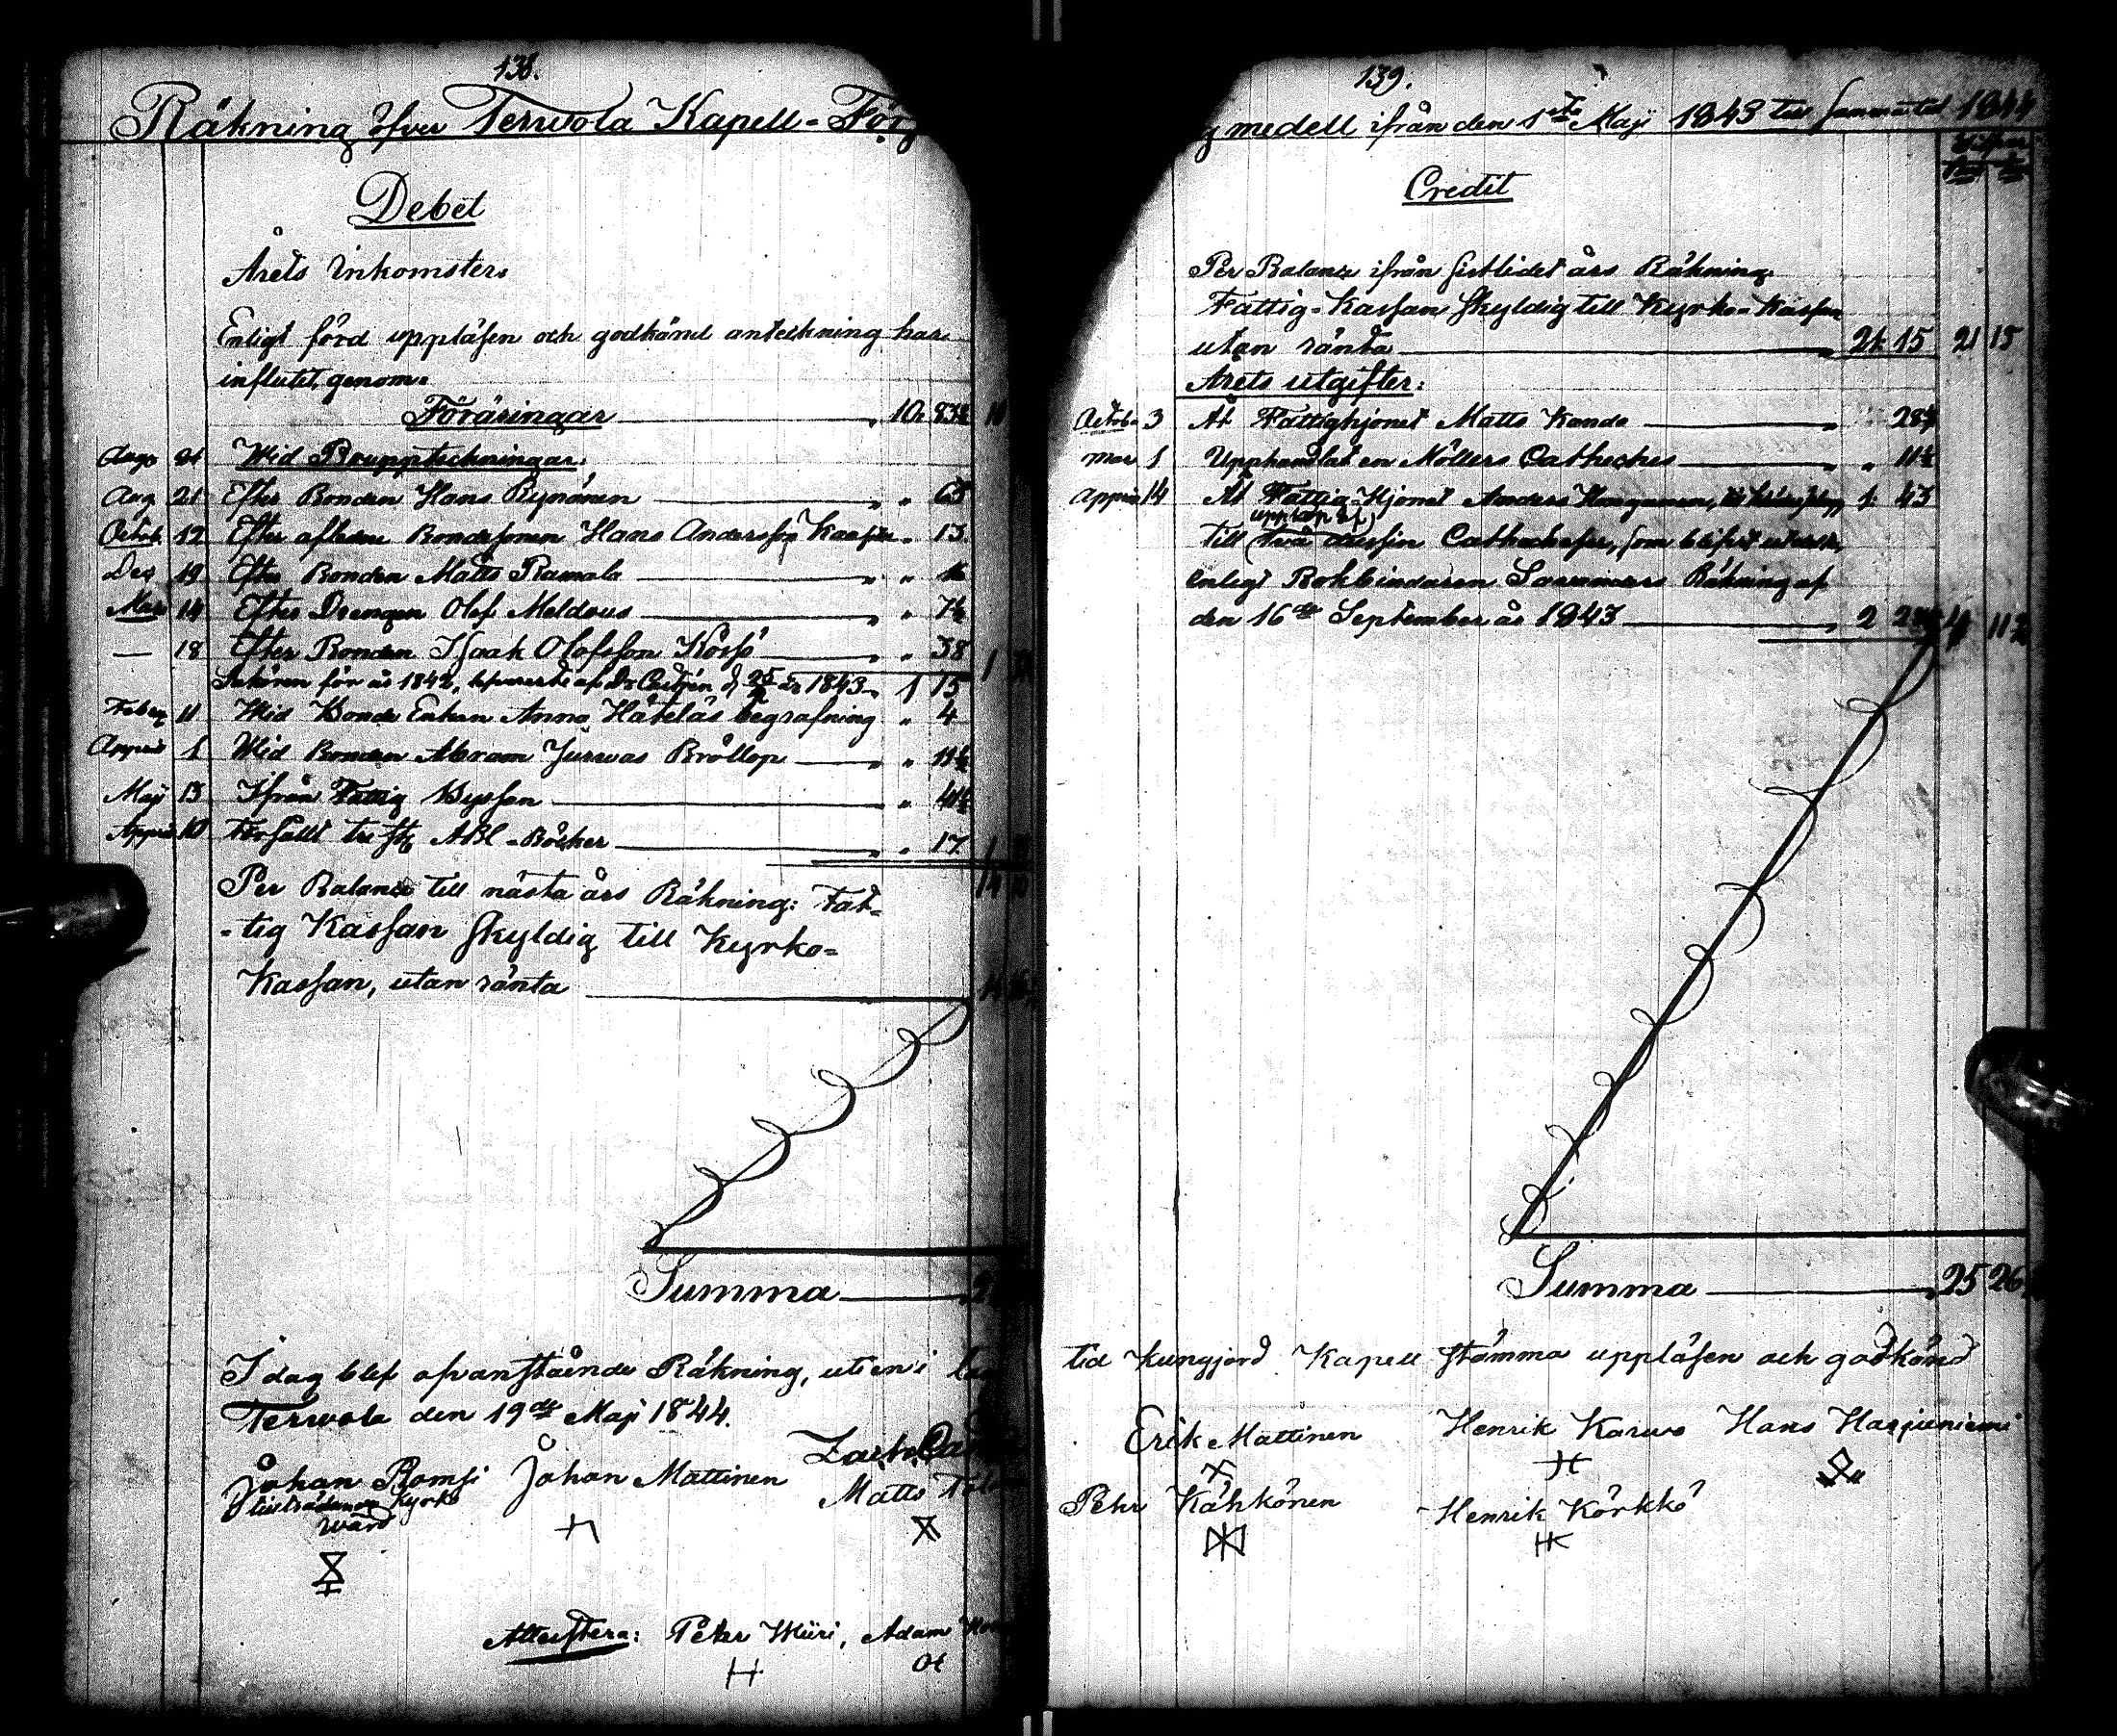 138.
Räkning öfver Terwola Kapell-
Debet
Årets Inkomster.
Enligt förd uppläsen och godkänd anteckning har
influtit, genom:
Föräringar 10. 83½
21 Wid Bouppteckningar.
Aug 21 Efter Bonden Hans 65
Octob. 12 Efter aflidne Bondesonen Hans Andersson 13.
Dec 19 Efter Bonden Matts Ramala
Mars 14 Efter Drengen Olof Meldous 7½
— 18 Efter Bonden Isaak Olofsson Kossö 38
för år 1842, af 1843 1 15
11 Wid Bonde Enkan Anna Häteläs begrafning 4
1 Wid Bonden Abram Jurwas Bröllop
Maji 13 Ifrån Fattig Byssan
10 Försålt tre st. ABC-Böcker 17.
Per Balance till nästa års Räkning: Fat-
-tig Kassan skyldig till Kyrko-
Kassan, utan ränta
Summa
I dag blef ofvanstående Räkning, uti en i
Terwola den 19de Maji 1844.
Johan Romsi Johan Mattinen
Kyrko Matts
wärd
Attestera: Petter Wiiri, Adam
139.
medell ifrån den 1sta Maji 1843 till samma tid 1844
Credit
Per Balance ifrån sistlidet års Räkning
Fattig-Kassan skyldig till Kyrko-Kassan
utan ränta 21. 15 21 15
Årets utgifter:
Octob. 3 At Fattighjonet Matts Kando
Mar 1 Upphandlat en Möllers Catheches 11½
14 At Fattig-Hjonet Anders 1. 43
till två dussin Cathecheser, som blifvit
enligt Bokbindaren Räkning af
den 16de September år 1843 2
Summa 25 26
tid kungjord Kapell stämma uppläsen och godkänd
Erik Mattinen Henrik Karwo Hans Harjuniemi
Pehr Kähkönen Henrik Körkkö